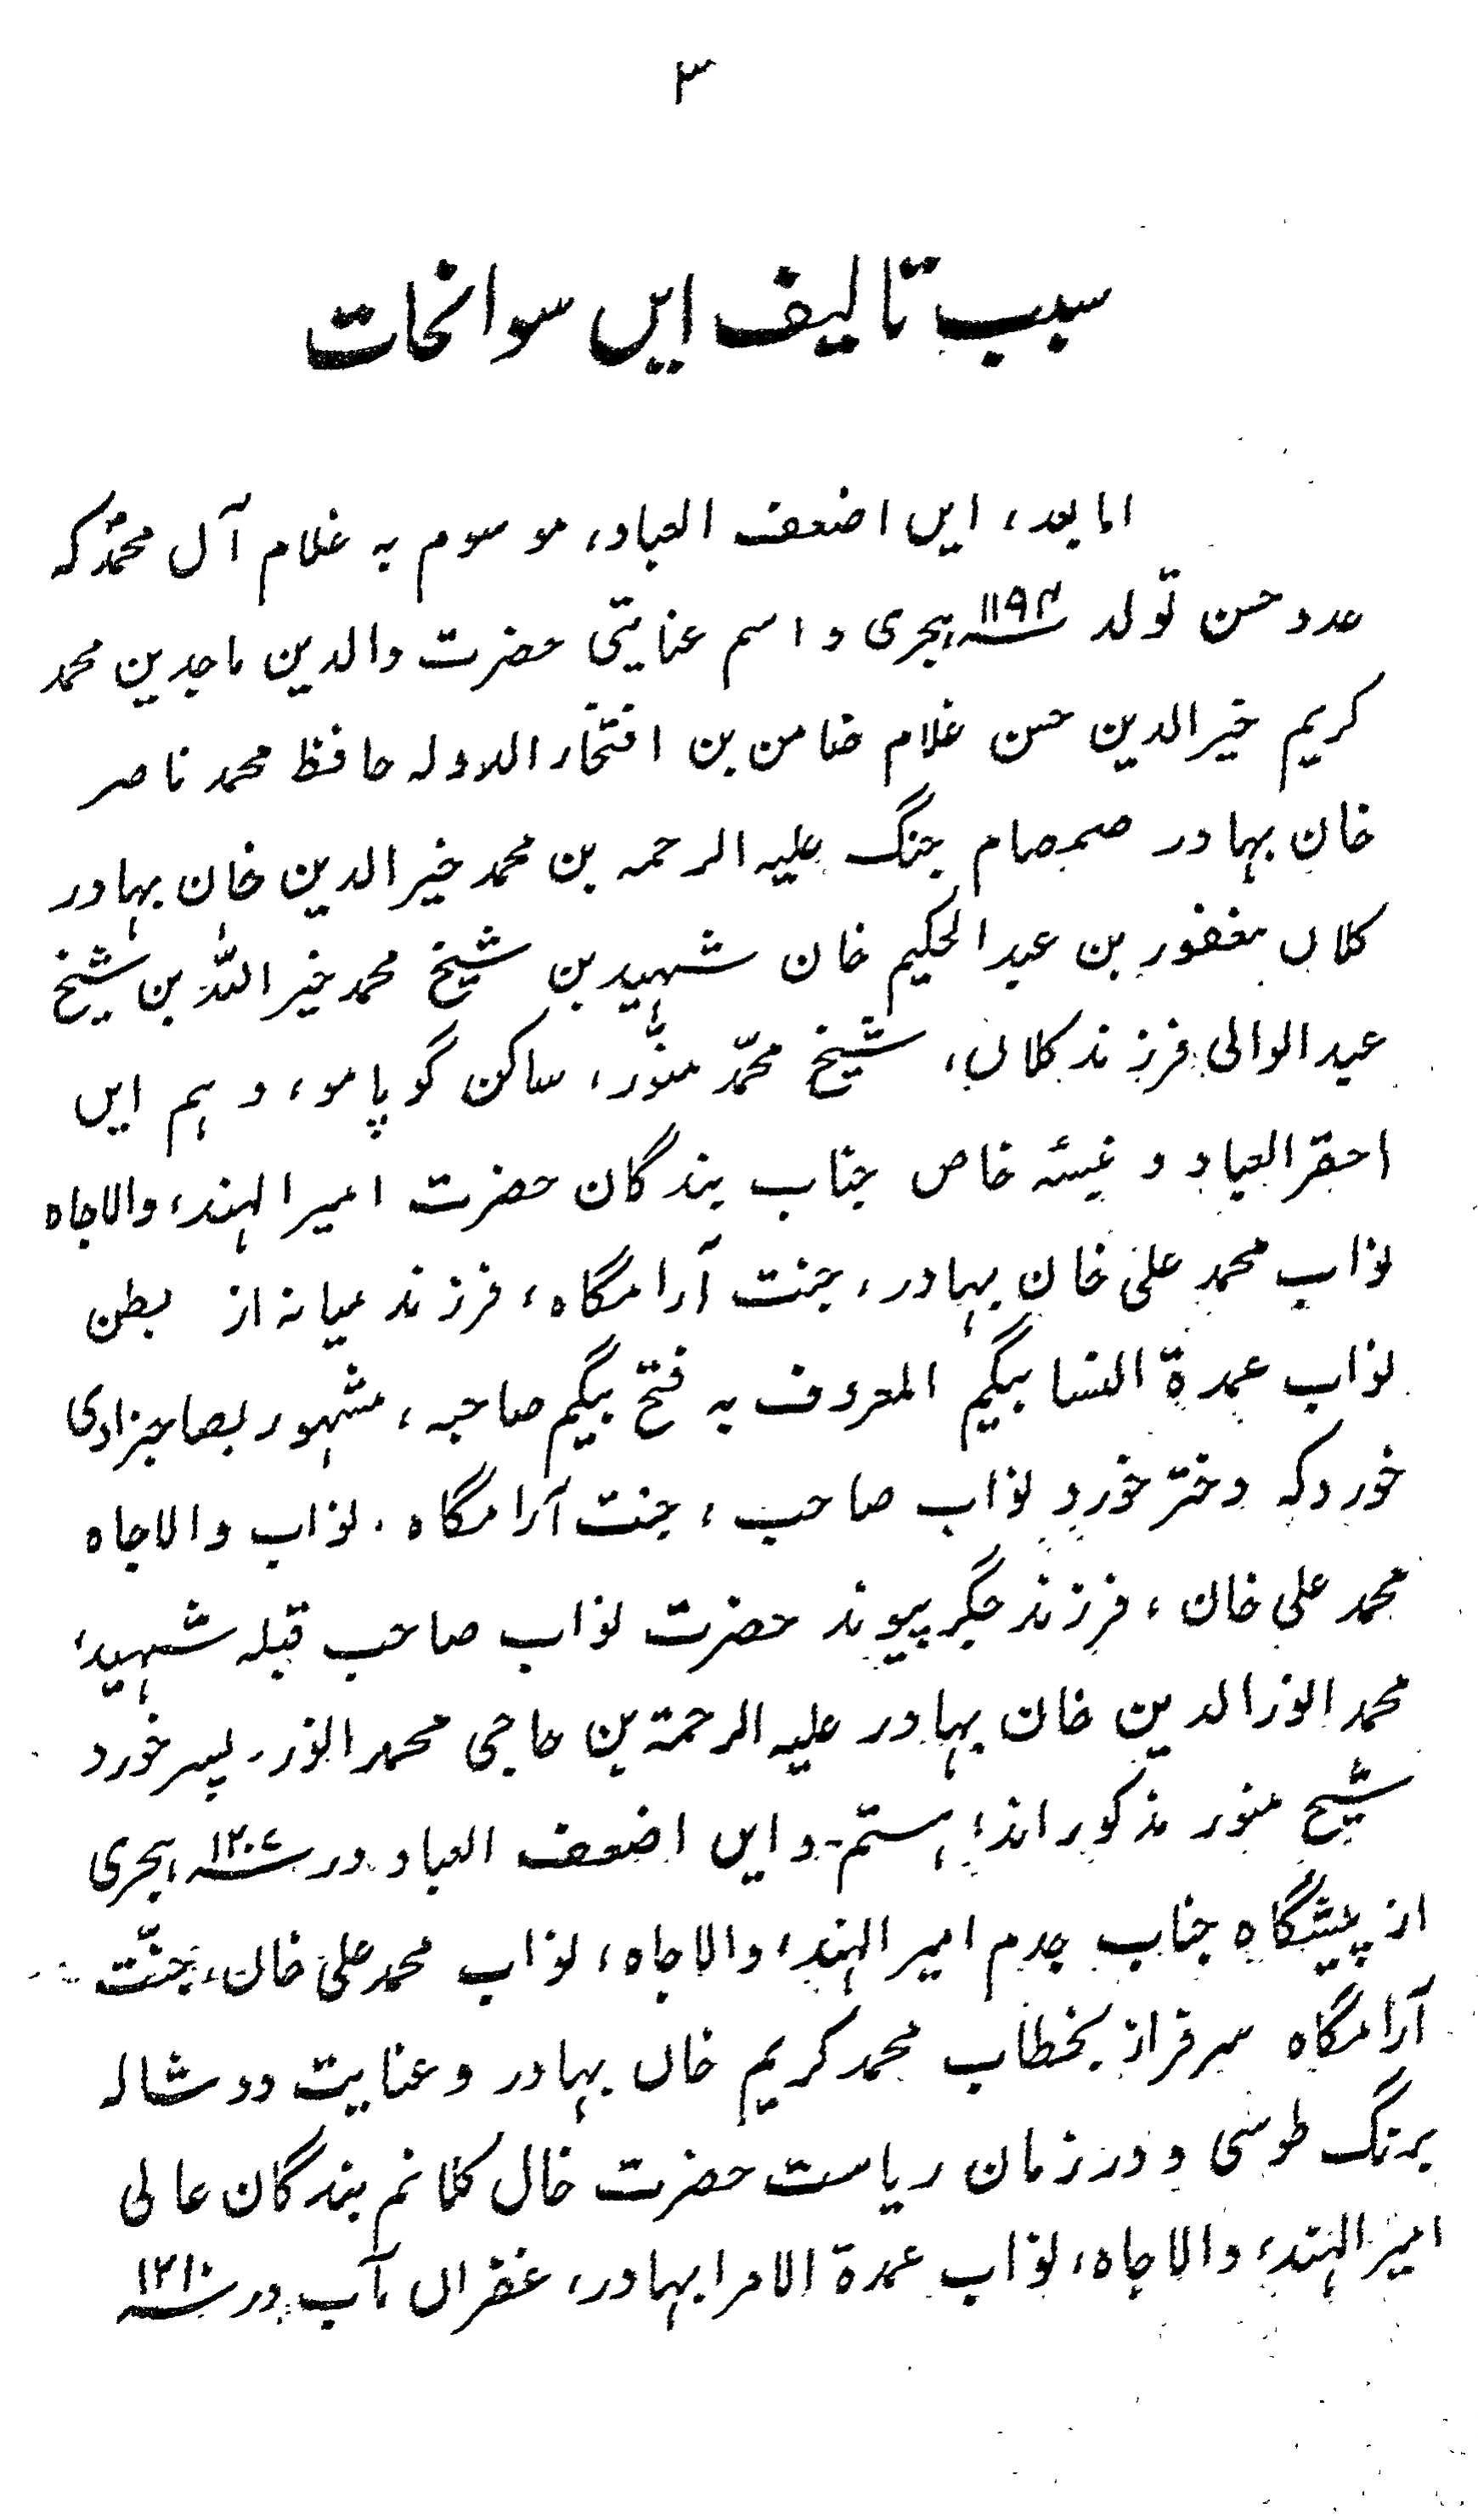 ۳
سبب تالیف ایں سوانحات
اما بعد، ایں اضعف العباد، موسوم بہ غلام آل محمدؐ کہ
عدد حسن تولد ۱۱۹۴ سنہ ہجری و اسم عنایتی حضرت والدین ماجدین محمد
کریم خیرالدین حسن غلام ضامن بن افتخار الدولہ حافظ محمد ناصر
خان بہادر صمصام جنگ علیہ الرحمہ بن محمد خیر الدین خان بہادر
کلاں مغفور بن عبدالحکیم خان شہید بن شیخ محمد خیر اللہ بن شیخ
عبد الوالی فرزند کلاں، شیخ محمّد منوّر، ساکن گوپامو، و ہم ایں
احقر العباد و نبیسۂ خاص جناب بندگان حضرت امیر الہند، والاجاہ
نواب محمد علی خان بہادر، جنت آرامگاہ، فرزند میانہ از بطن
نواب عمدة النسا بیگم المعروف بہ فتح بیگم صاحبہ، مشہور بصاحبزادی
خورد کہ دختر خورد نواب صاحب، جنت آرامگاہ، نواب والاجاہ
محمد علی خان، فرزند جگر پیوند حضرت نواب صاحب قبلہ شہید،
محمد انور الدین خان بہادر علیہ الرحمة بن حاجی محمد انور، پسر خورد
شیخ منور مذکور اند، ہستم۔ و ایں اضعف العباد در سنہ ۱۲۰۷ ہجری
از پیشگاہ جناب جدم امیر الہند، والاجاہ، نواب محمد علی خاں، جنّت
آرامگاہ سرفراز بخطاب محمد کریم خاں بہادر و عنایت دوشالہ
برنگ طوسی و در زمان ریاست حضرت خال کلانم بندگان عالی
امیر الہند، والاجاہ، نواب عمدة الامرا بہادر، غفراں مآب در سنہ ۱۲۱۰